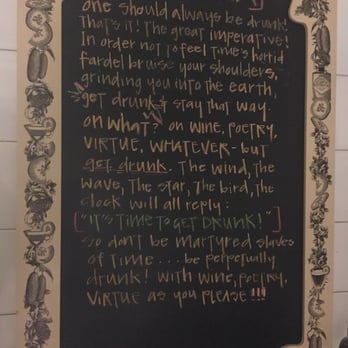 one should always be drunk!
That's it! The great imperative!
In order not to feel time's horrid
fardel bruise your shoulders,
grinding you into the earth,
get drunk & stay that way.
on what? on wine, poetry,
virtue, whatever - but
get drunk. The wind, the
wave, the star, the bird, the
clock will all reply:
["It's time to get drunk!"]
so don't be martyred slaves
of time... be perpetually
drunk! with wine, poetry,
virtue as you please!!!